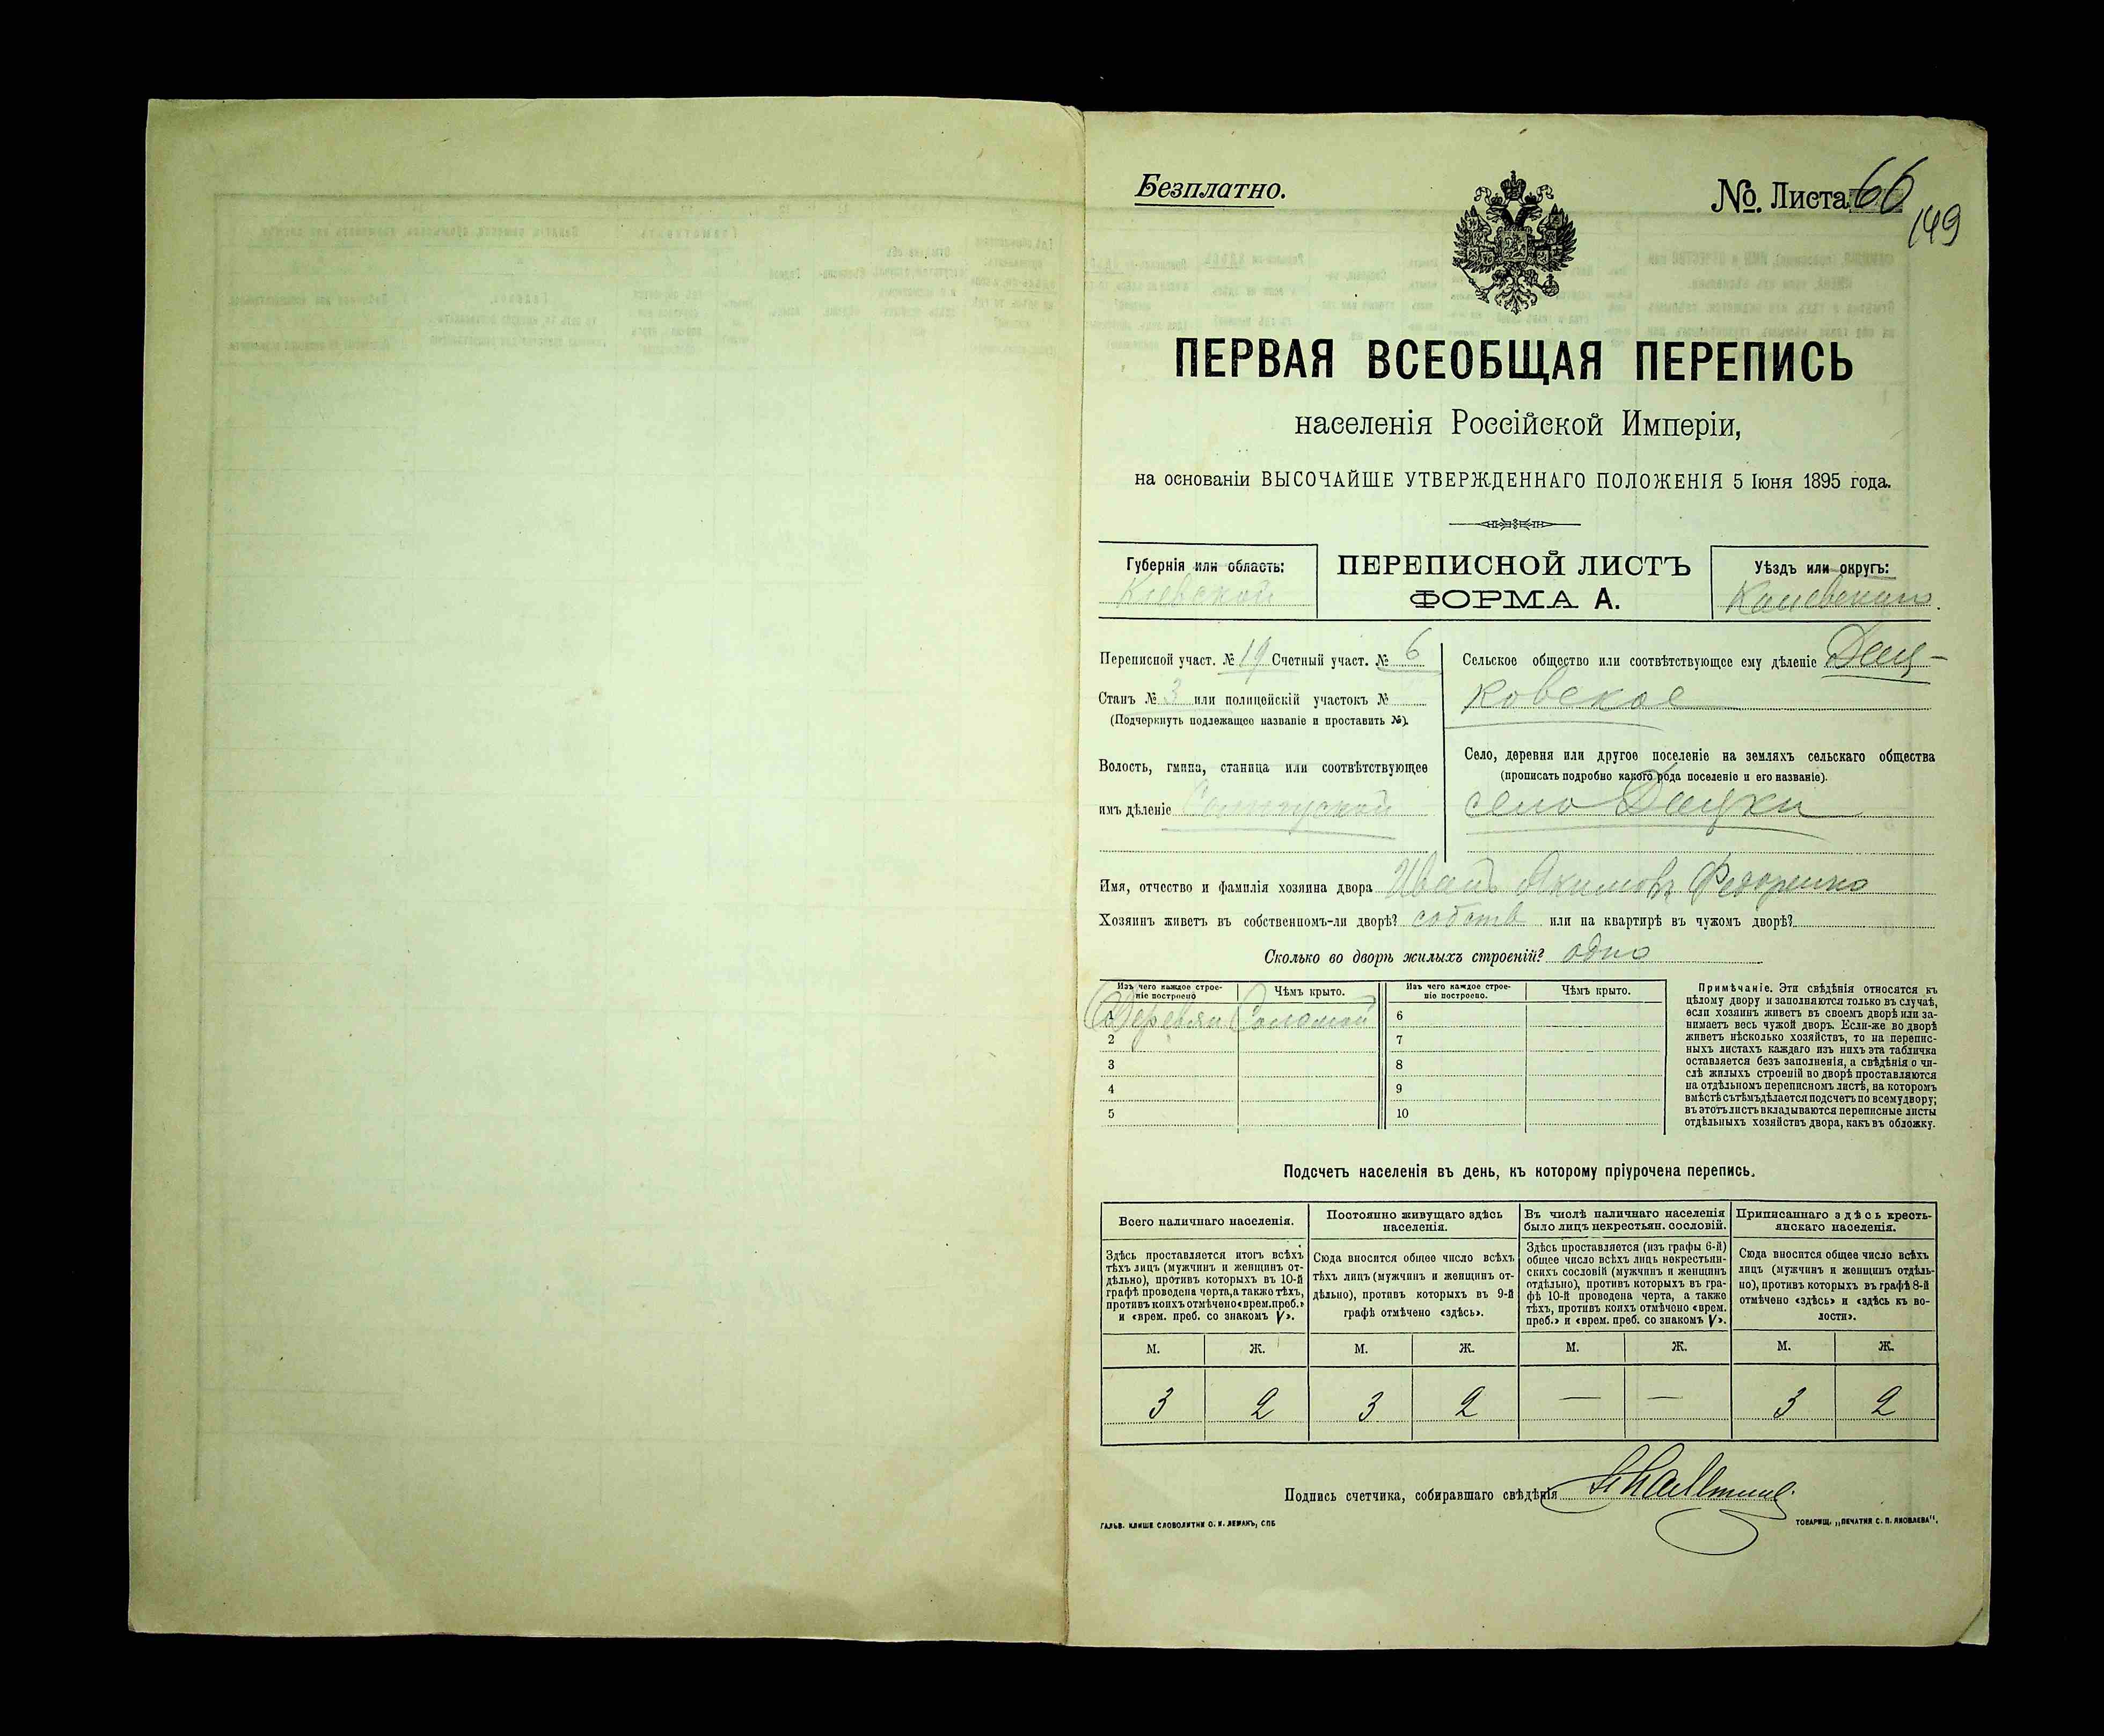 Безплатно.
№ Листа 66
149
ПЕРВАЯ ВСЕОБЩАЯ ПЕРЕПИСЬ
населенія Россійской Имперіи,
на основаніи ВЫСОЧАЙШЕ УТВЕРЖДЕННАГО ПОЛОЖЕНІЯ 5 Іюня 1895 года.
Губернія или область:
Кіевской
ПЕРЕПИСНОЙ ЛИСТЪ
ФОРМА А.
Уѣздъ или округъ:
Каневскаго
Переписной участ. № 19 Счетный участ. № 6
Станъ № 3 или полицейскій участокъ №
(Подчеркнуть подлежащее названіе и проставить №).
Волость, гмина, станица или соотвѣтствующее
имъ дѣленіе
Сельское общество или соотвѣтствующее ему дѣленіе Дац-
ковское
Село, деревня или другое поселеніе на земляхъ сельскаго общества
(прописать подробно какого рода поселеніе и его названіе).
село Дацки
Имя, отчество и фамилія хозяина двора Иванъ Акимовъ Федоренко
Хозяинъ живетъ въ собственномъ-ли дворѣ? собств или на квартирѣ въ чужомъ дворѣ?
Сколько во дворѣ жилыхъ строеній? одно
Изъ чего каждое строе-
ніе построено
Чѣмъ крыто.
Изъ чего каждое строе-
ніе построено.
Чѣмъ крыто.
Деревян Соломой
6
2
7
3
8
4
9
5
10
Примѣчаніе. Эти свѣдѣнія относятся къ
цѣлому двору и заполняются только въ случаѣ,
если хозяинъ живетъ въ своемъ дворѣ или за-
нимаетъ весь чужой дворъ. Если-же во дворѣ
живетъ нѣсколько хозяйствъ, то на перепис-
ныхъ листахъ каждаго изъ нихъ эта табличка
оставляется безъ заполненія, а свѣдѣнія о чи-
слѣ жилыхъ строеній во дворѣ проставляются
на отдѣльномъ переписномъ листѣ, на которомъ
вмѣстѣ съ тѣмъ дѣлается подсчетъ по всему двору;
въ этотъ листъ вкладываются переписные листы
отдѣльныхъ хозяйствъ двора, какъ въ обложку.
Подсчетъ населенія въ день, къ которому пріурочена перепись.
Всего наличнаго населенія.
Здѣсь проставляется итогъ всѣхъ
тѣхъ лицъ (мужчинъ и женщинъ от-
дѣльно), противъ которыхъ въ 10-й
графѣ проведена черта, а также тѣхъ,
противъ коихъ отмѣчено «врем. преб.»
и «врем. преб. со знакомъ V».
Постоянно живущаго здѣсь
населенія.
Сюда вносится общее число всѣхъ
тѣхъ лицъ (мужчинъ и женщинъ от-
дѣльно), противъ которыхъ въ 9-й
графѣ отмѣчено «здѣсь».
Въ числѣ наличнаго населенія
было лицъ некрестьян. сословій.
Здѣсь проставляется (изъ графы 6-й)
общее число всѣхъ лицъ некрестьян-
скихъ сословій (мужчинъ и женщинъ
отдѣльно), противъ которыхъ въ гра-
фѣ 10-й проведена черта, а также
тѣхъ, противъ коихъ отмѣчено «врем.
преб.» и «врем. преб. со знакомъ V».
Приписаннаго здѣсь кресть-
янскаго населенія.
Сюда вносится общее число всѣхъ
лицъ (мужчинъ и женщинъ отдѣль-
но), противъ которыхъ въ графѣ 8-й
отмѣчено «здѣсь» и «здѣсь къ во-
лости».
М. Ж. М. Ж. М. Ж. М. Ж.
3 2 3 2 — — 3 2
Подпись счетчика, собиравшаго свѣдѣнія
ГАЛЬВ. КЛИШЕ СЛОВОЛИТНИ О. И. ЛЕМАНЪ, СПБ
ТОВАРИЩ. „ПЕЧАТНЯ С. П. ЯКОВЛЕВА".